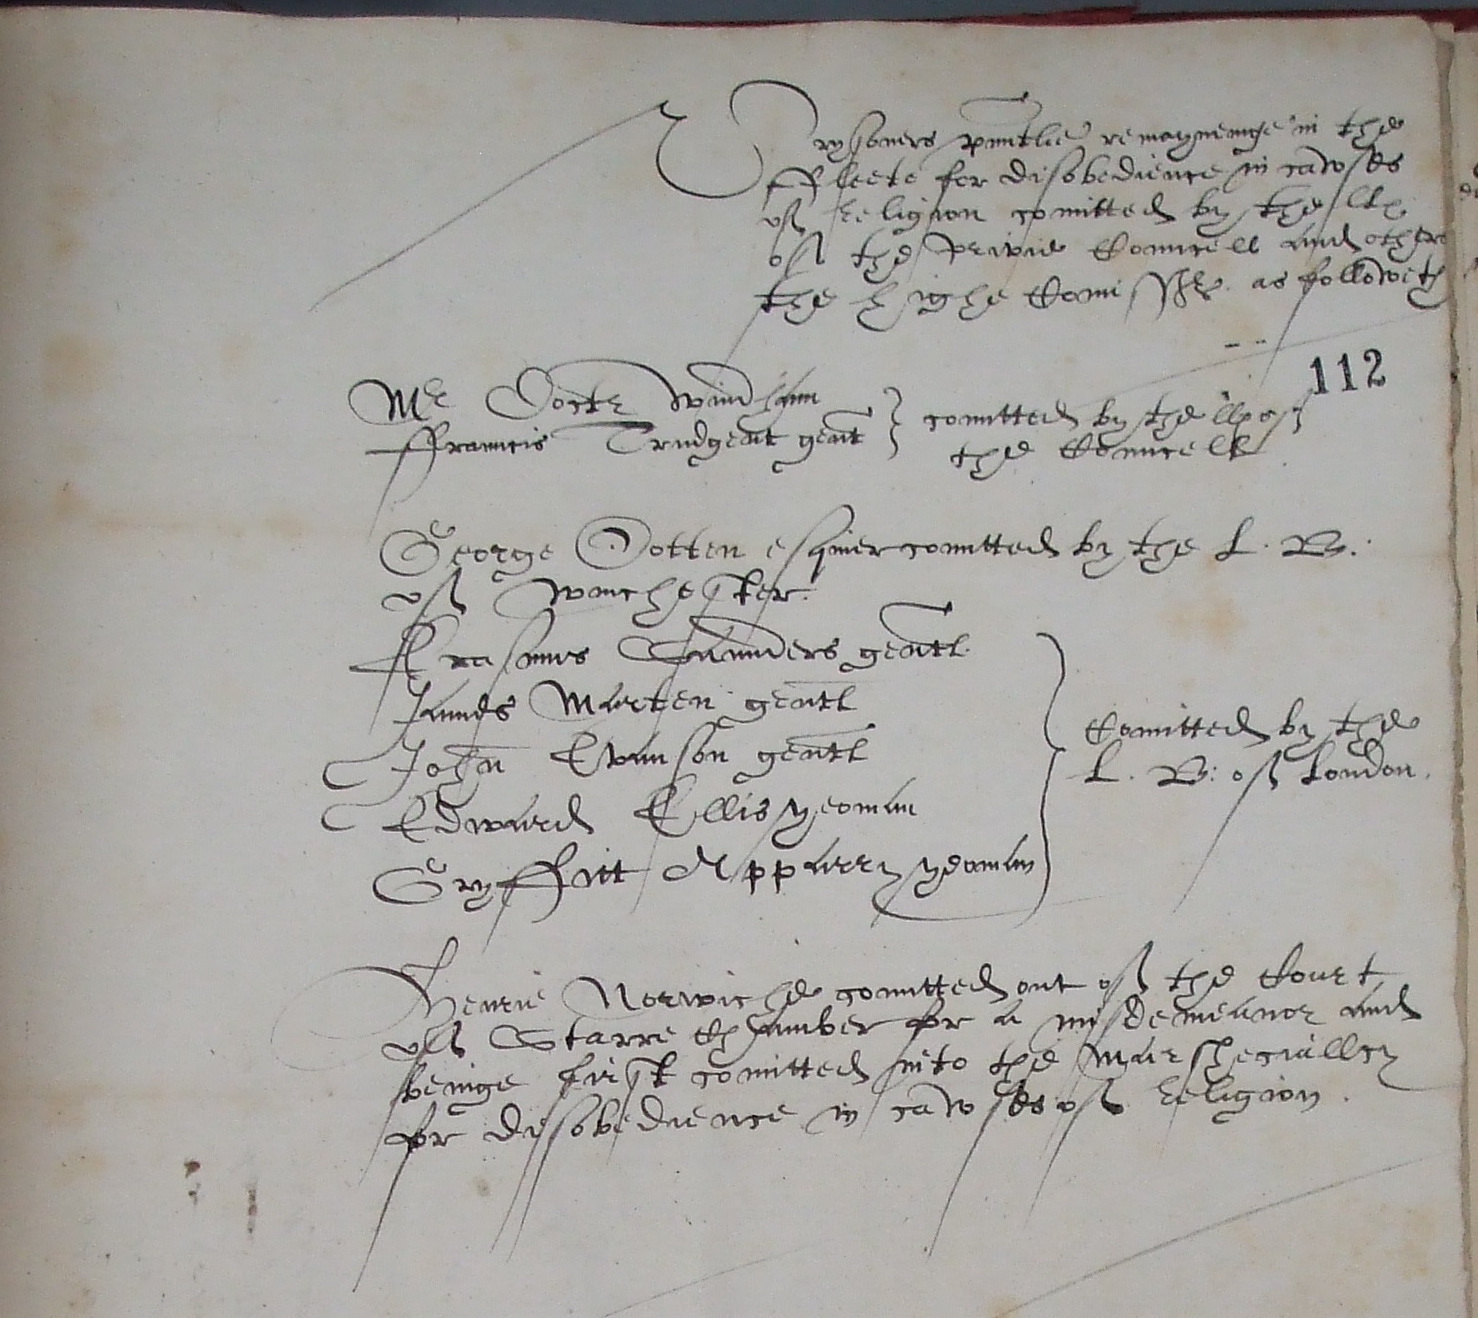 Prysoners pntlie remayneinge in the
Fleete for disobedience in cawses
off religion comitted by the llp
off the privie Councell and others
the highe Comissrs as followeth
112
Mr Doctr Windham
ffrauncis Trudgent gent } comitted by the llps off
the Councell
George Dotten esquier comitted by the L. B.
off Winchester.
Erasmus Saunders gentl.
James Marten gentl
John Evanson gentl
Edward Ellis yeoman
Gryffitt Apparry yeoman
Comitted by the
L. B: off London.
Henrie Norwiche comitted out off the Court
off Starre Chamber for a misdemeanor and
beinge first comitted into the Marshecially
for disobedience in cawses off religion.